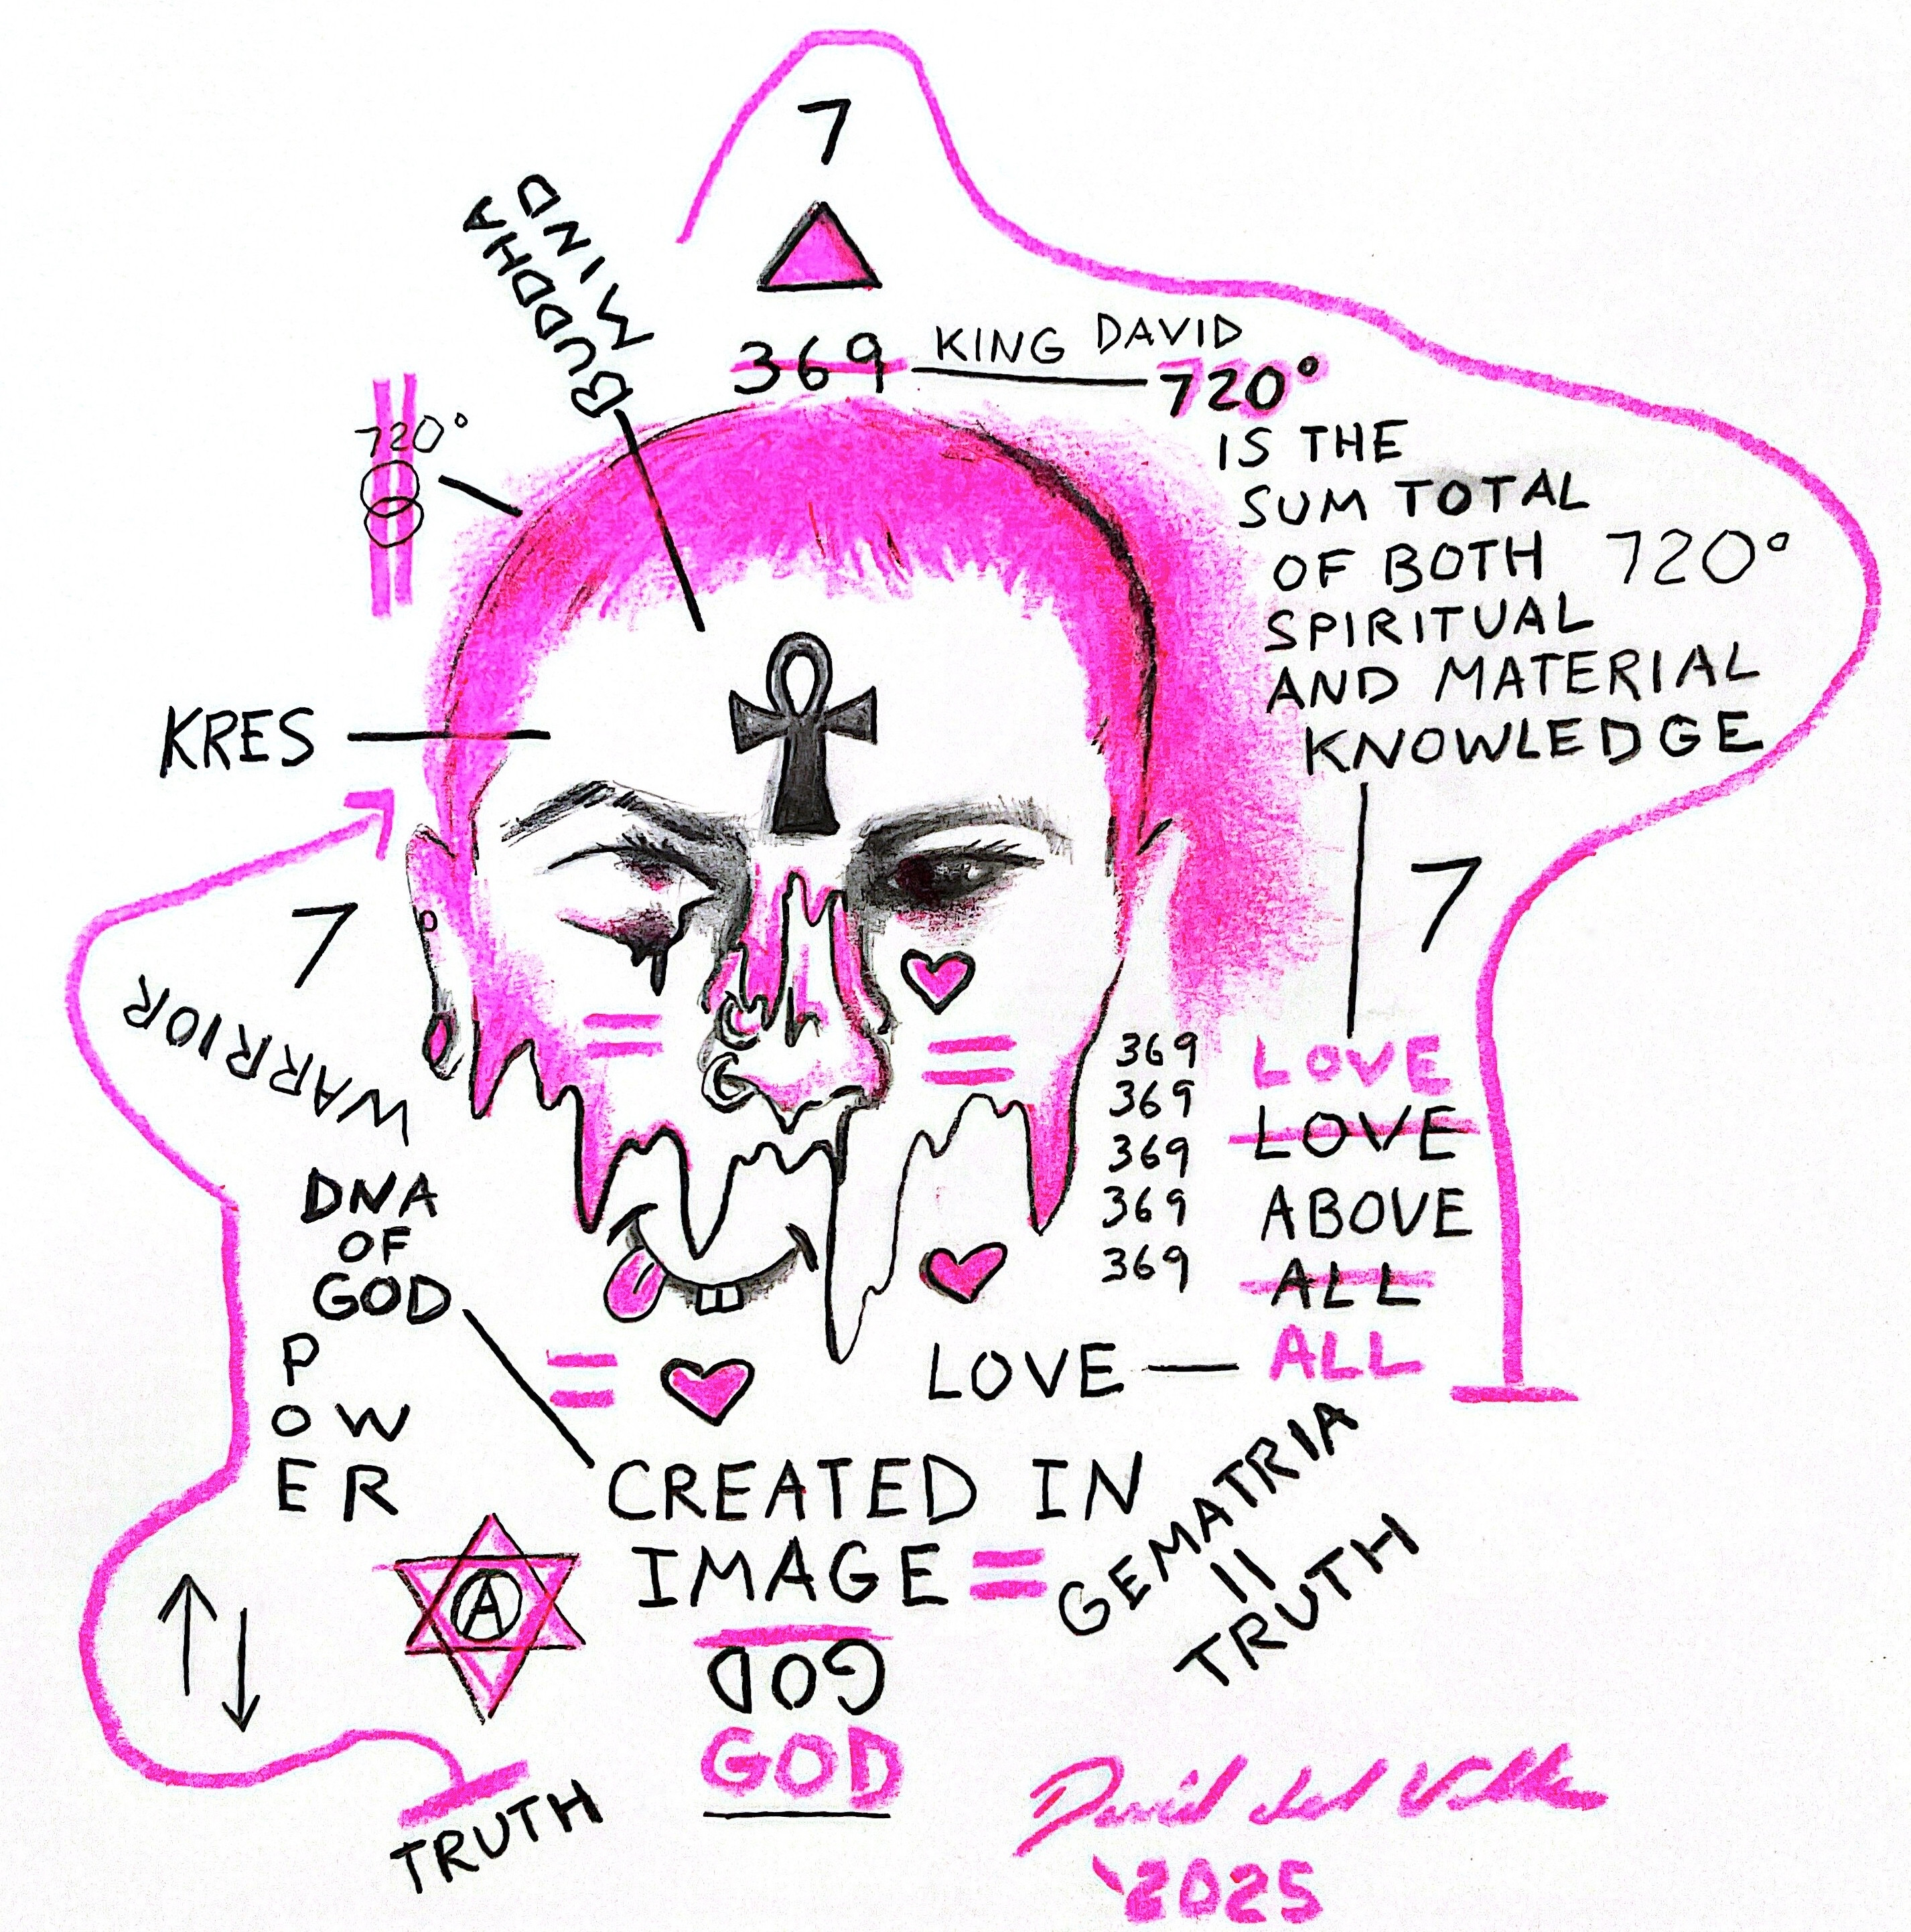 7
BUDDHA
MIND
369
KING DAVID
720°
720°
IS THE
SUM TOTAL
OF BOTH 720°
SPIRITUAL
AND MATERIAL
KNOWLEDGE
KRES
7
7
WARRIOR
369
369
369
369
369
LOVE
LOVE
ABOVE
ALL
ALL
LOVE
DNA
OF
GOD
P
OW
ER
CREATED IN
IMAGE =
GEMATRIA
=
TRUTH
A
GOD
GOD
TRUTH
David del Valle
'2025